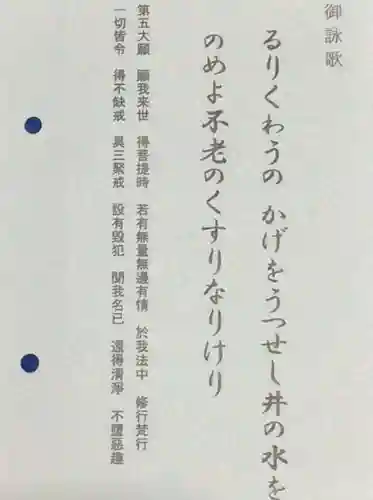 御詠歌
るりくわうの かげをうつせし井の水を
のめよ不老のくすりなりけり
第五大願 願我来世 得菩提時 若有無量無邊有情 於我法中 修行梵行
一切皆令 得不缺戒 具三聚戒 設有毀犯 聞我名已 還得清淨 不墮惡趣